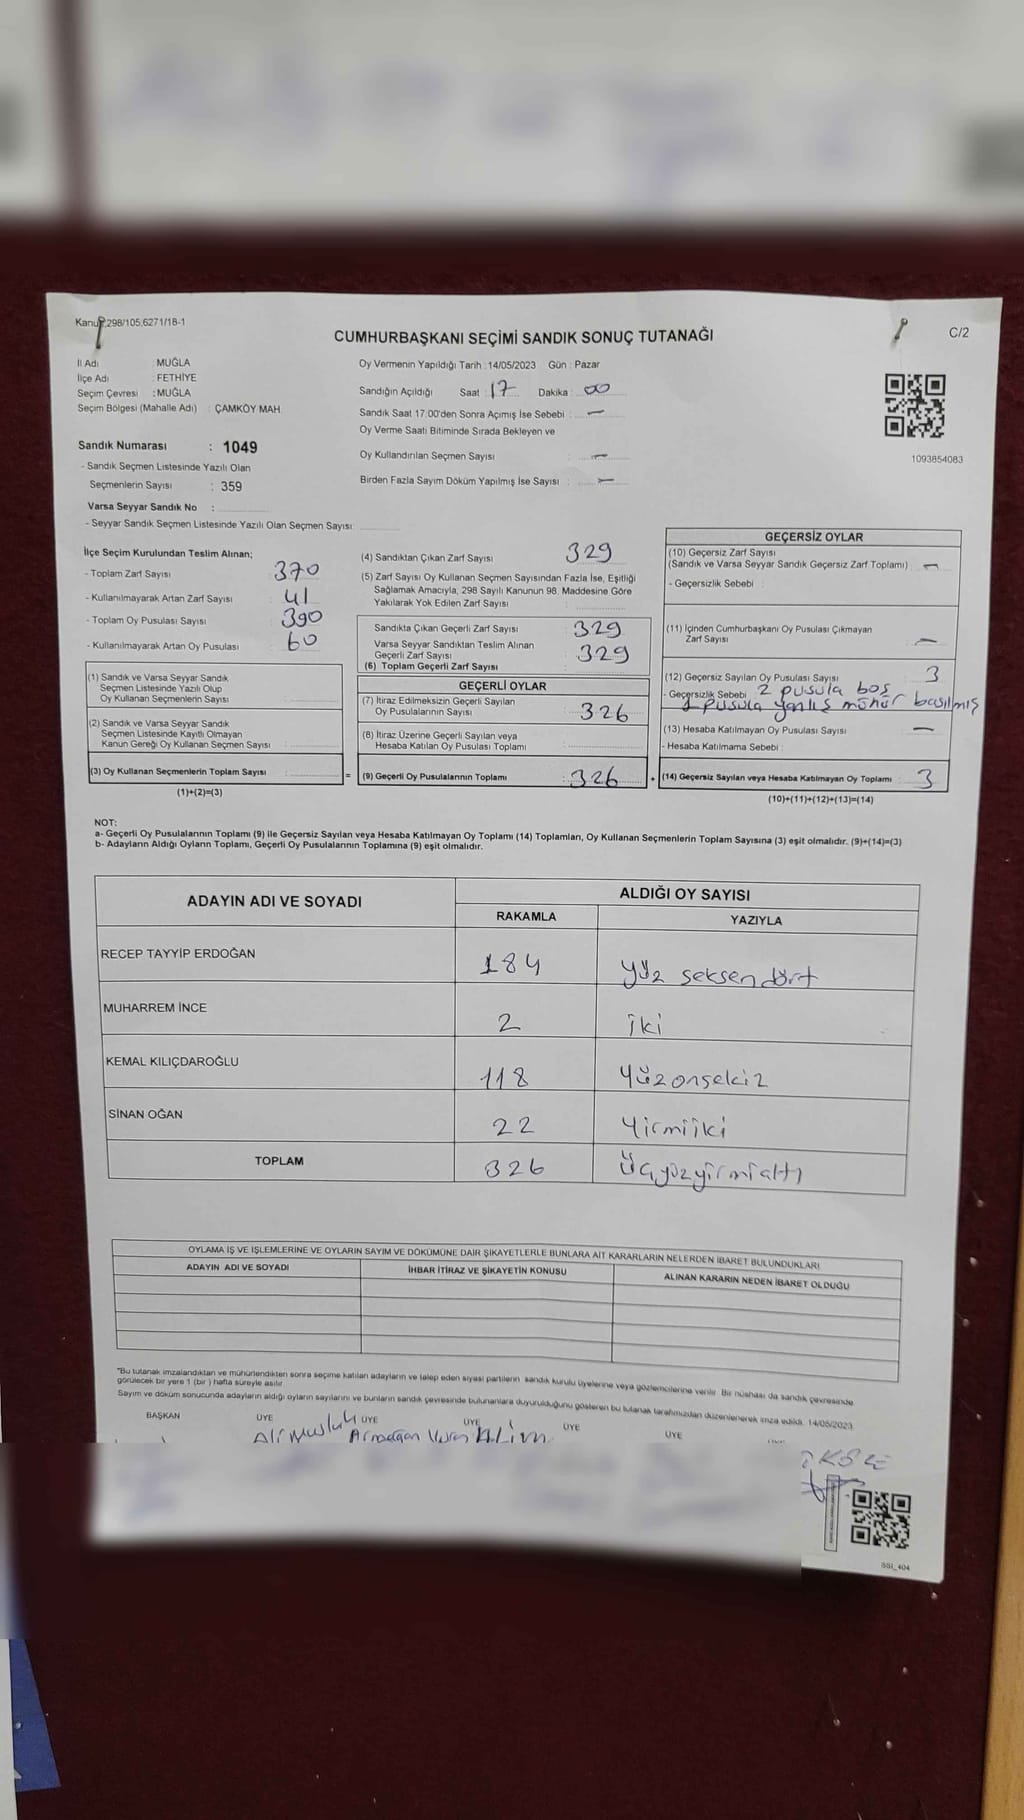 Kanun:298/105,6271/18-1
CUMHURBAŞKANI SEÇİMİ SANDIK SONUÇ TUTANAĞI
C/2
İl Adı : MUĞLA
İlçe Adı : FETHİYE
Seçim Çevresi : MUĞLA
Seçim Bölgesi (Mahalle Adı) : ÇAMKÖY MAH.
Oy Vermenin Yapıldığı Tarih : 14/05/2023 Gün : Pazar
Sandığın Açıldığı Saat : 17 Dakika : 00
Sandık Saat 17.00'den Sonra Açımış İse Sebebi : —
Oy Verme Saati Bitiminde Sırada Bekleyen ve
Oy Kullandırılan Seçmen Sayısı : —
Birden Fazla Sayım Döküm Yapılmış İse Sayısı : —
1093854083
Sandık Numarası : 1049
- Sandık Seçmen Listesinde Yazılı Olan
Seçmenlerin Sayısı : 359
Varsa Seyyar Sandık No :
- Seyyar Sandık Seçmen Listesinde Yazılı Olan Seçmen Sayısı:
İlçe Seçim Kurulundan Teslim Alınan;
- Toplam Zarf Sayısı 370
- Kullanılmayarak Artan Zarf Sayısı : 41
- Toplam Oy Pusulası Sayısı 390
- Kullanılmayarak Artan Oy Pusulası : 60
(1) Sandık ve Varsa Seyyar Sandık
Seçmen Listesinde Yazılı Olup
Oy Kullanan Seçmenlerin Sayısı :
(2) Sandık ve Varsa Seyyar Sandık
Seçmen Listesinde Kayıtlı Olmayan
Kanun Gereği Oy Kullanan Seçmen Sayısı :
(3) Oy Kullanan Seçmenlerin Toplam Sayısı :
(1)+(2)=(3)
=
(4) Sandıktan Çıkan Zarf Sayısı 329
(5) Zarf Sayısı Oy Kullanan Seçmen Sayısından Fazla İse, Eşitliği
Sağlamak Amacıyla, 298 Sayılı Kanunun 98. Maddesine Göre
Yakılarak Yok Edilen Zarf Sayısı :
Sandıkta Çıkan Geçerli Zarf Sayısı : 329
Varsa Seyyar Sandıktan Teslim Alınan
Geçerli Zarf Sayısı : 329
(6) Toplam Geçerli Zarf Sayısı
GEÇERLİ OYLAR
(7) İtiraz Edilmeksizin Geçerli Sayılan
Oy Pusulalarının Sayısı : 326
(8) İtiraz Üzerine Geçerli Sayılan veya
Hesaba Katılan Oy Pusulası Toplamı :
(9) Geçerli Oy Pusulalarının Toplamı : 326
+
GEÇERSİZ OYLAR
(10) Geçersiz Zarf Sayısı
(Sandık ve Varsa Seyyar Sandık Geçersiz Zarf Toplamı) : —
- Geçersizlik Sebebi :
(11) İçinden Cumhurbaşkanı Oy Pusulası Çıkmayan
Zarf Sayısı : —
(12) Geçersiz Sayılan Oy Pusulası Sayısı : 3
- Geçersizlik Sebebi : 2 pusula boş
1 pusula yanlış mühür basılmış
(13) Hesaba Katılmayan Oy Pusulası Sayısı : —
- Hesaba Katılmama Sebebi :
(14) Geçersiz Sayılan veya Hesaba Katılmayan Oy Toplamı : 3
(10)+(11)+(12)+(13)=(14)
NOT:
a- Geçerli Oy Pusulalarının Toplamı (9) ile Geçersiz Sayılan veya Hesaba Katılmayan Oy Toplamı (14) Toplamları, Oy Kullanan Seçmenlerin Toplam Sayısına (3) eşit olmalıdır. (9)+(14)=(3)
b- Adayların Aldığı Oyların Toplamı, Geçerli Oy Pusulalarının Toplamına (9) eşit olmalıdır.
ADAYIN ADI VE SOYADI
ALDIĞI OY SAYISI
RAKAMLA YAZIYLA
RECEP TAYYİP ERDOĞAN 184 yüz seksen dört
MUHARREM İNCE 2 iki
KEMAL KILIÇDAROĞLU 118 Yüzonsekiz
SİNAN OĞAN 22 Yirmiiki
TOPLAM 326 Üçyüzyirmialtı
OYLAMA İŞ VE İŞLEMLERİNE VE OYLARIN SAYIM VE DÖKÜMÜNE DAİR ŞİKAYETLERLE BUNLARA AİT KARARLARIN NELERDEN İBARET BULUNDUKLARI
ADAYIN ADI VE SOYADI İHBAR İTİRAZ VE ŞİKAYETİN KONUSU ALINAN KARARIN NEDEN İBARET OLDUĞU
*Bu tutanak imzalandıktan ve mühürlendikten sonra seçime katılan adayların ve talep eden siyasi partilerin sandık kurulu üyelerine veya gözlemcilerine verilir. Bir nüshası da sandık çevresinde
görülecek bir yere 1 (bir) hafta süreyle asılır.
Sayım ve döküm sonucunda adayların aldığı oyların sayılarını ve bunların sandık çevresinde bulunanlara duyurulduğunu gösteren bu tutanak tarafımızdan düzenlenerek imza edildi. 14/05/2023
BAŞKAN ÜYE ÜYE ÜYE ÜYE ÜYE
SSI_404